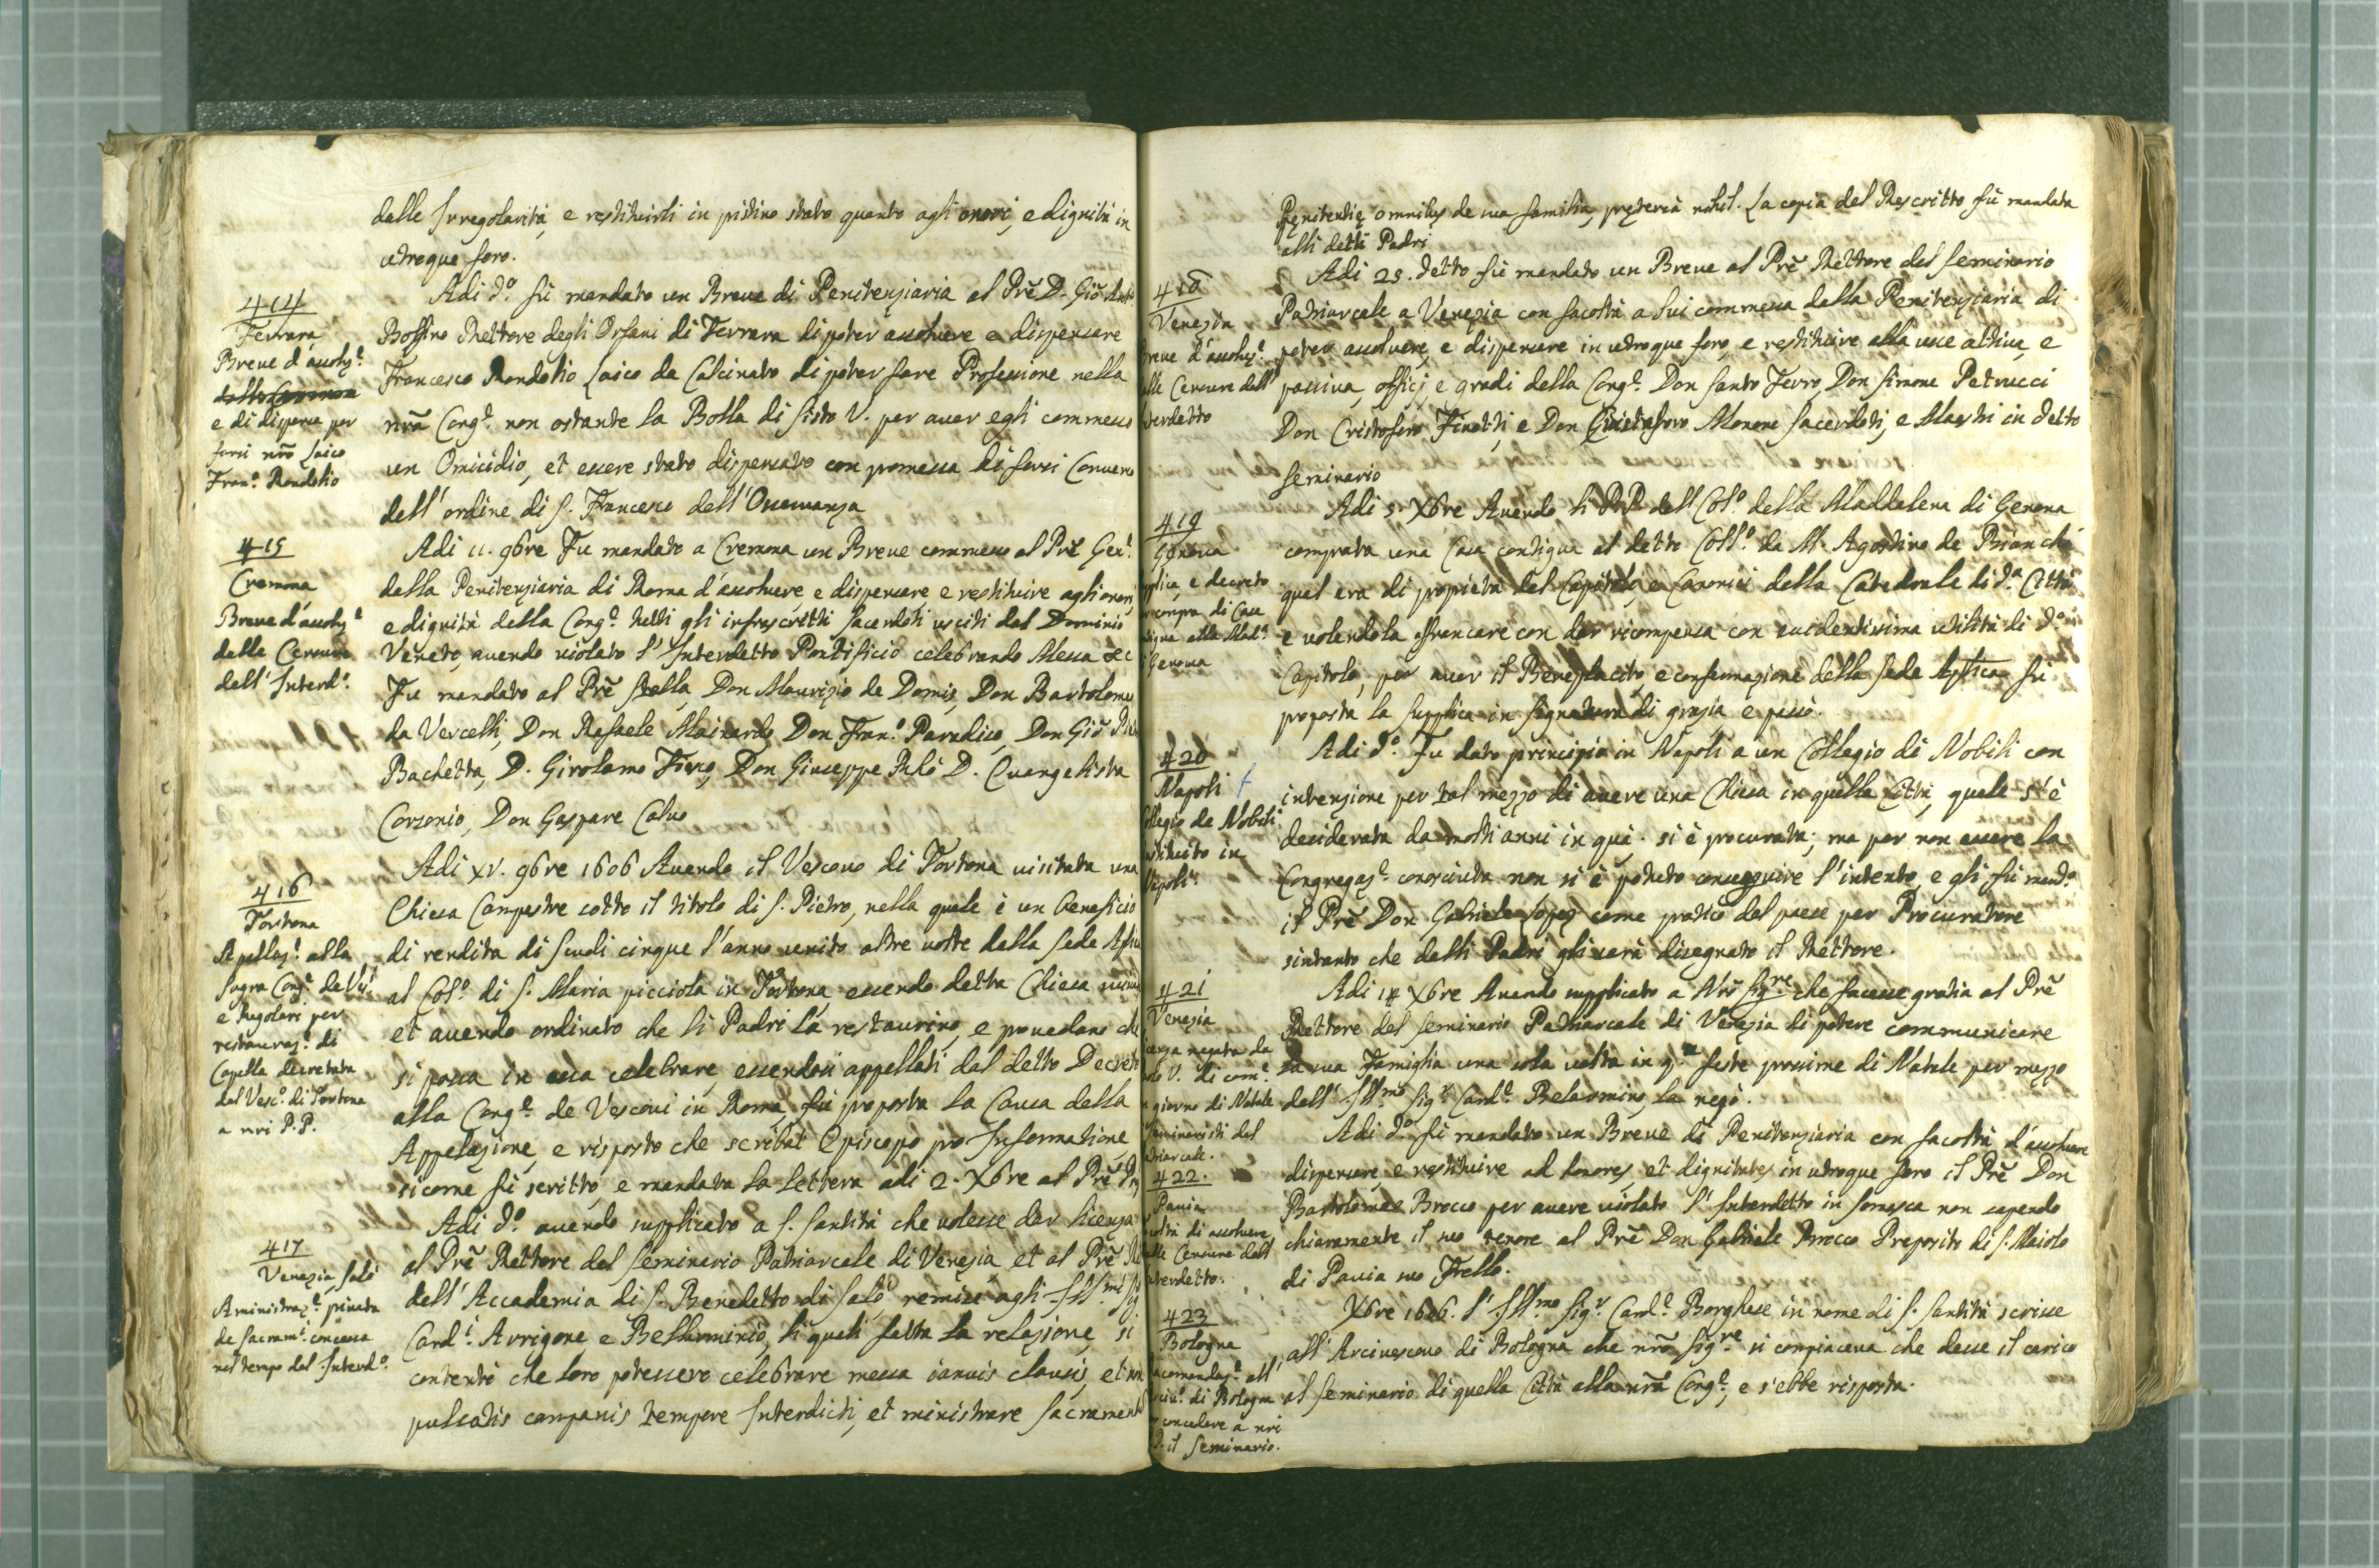 dalle Irregolarità, e restituirli in pristino stato quanto agli onori, e dignità in
utroque foro.
414
Ferrara
Breve d'assoluz.e
dalle Censure
e di dispensa per
farsi nrõ laico
Fran.o Rondolio
Adi d.o fù mandato un Breve di Penitenziaria al Prẽ D. Giõ Ant.
Bossino Rettore degli Orfani di Ferrara di poter assolvere e dispensare
Francesco Rondolio Laico da Calcinato di poter fare Professione nella
nrã Cong.e non ostante la Bolla di Sisto V. per aver egli commesso
un Omicidio, et essere stato dispensato con promessa di farsi Converso
dell'ordine di S. Francesco dell'Osservanza
415
Cremona
Breve d'assoluz.e
dalle Censure
dell'Interd.o
Adi 11. 9bre Fu mandato a Cremona un Breve commesso al Prẽ Gen.l
della Penitenziaria di Roma d'assolvere, e dispensare e restituire agli onori
e dignità della Cong.e tutti gli infrascritti Sacerdoti usciti dal Dominio
Veneto, avendo violato l'Interdetto Pontificio celebrando Messa &c
Fu mandato al Prẽ Stella, Don Maurizio de Domis, Don Bartolomeo
da Vercelli, Don Rafaele Mainardo, Don Fran.o Paradiso, Don Giõ
Bachetta, D. Girolamo Don Giuseppe D. Evangelista
Corsonio, Don Gaspare Calvo
416
Tortona
Apellaz.e alla
Sagra Cong.e de Ves.i
e Regolari per
restauraz.e di
Capella decretata
dal Vesc.o di Tortona
a nri P.P.
Adi XV. 9bre 1606 Avendo il Vescovo di Tortona visitata una
Chiesa Campestre sotto il titolo di S. Pietro, nella quale è un beneficio
di rendita di Scudi cinque l'anno unito altre volte dalla Sede
al Col.o di S. Maria picciola in Tortona, essendo detta Chiesa
et avendo ordinato che li Padri la restaurino, e provedano che
si possa in essa celebrare, essendosi appellati dal detto Decreto
alla Cong.e de Vescovi in Roma, fù proposta la Causa della
Appelazione, e risposto che scribat Episcopo pro Informatione,
sicome fù scritto, e mandata la lettera adi 2. Xbre al Prẽ
417
Venezia, Salò
Aministraz.e privata
de Sacram.i concessa
nel tempo del Interd.o
Adi d.o avendo supplicato a S. Santità che volesse dar licenza
al Prẽ Rettore del Seminario Patriarcale di Venezia, et al Prẽ
dell'Accademia di S. Benedetto di Salò, remise agli Ill.mi
Card.i Arrigone, e Bellarminio, li quali fatta la relazione, si
contentò che loro potessero celebrare messa ianuis clausis, et non
pulsatis campanis tempore Interdicti, et ministrare Sacramenta
Penitentię omnibus de sua familia, pręterea nihil. La copia del Rescritto fù mandata
alli detti Padri
418
Venezia
Breve d'assoluz.e
dalle Censure dell'
Interdetto
Adi 25. detto fù mandato un Breve al Prẽ Rettore del Seminario
Patriarcale a Venezia con facoltà a lui commessa dalla Penitenziaria di
poter assolvere, e dispensare in utroque foro, e restituire alla voce attiva, e
passiva, officj, e gradi della Cong.e Don Santo Ferro, Don Simone Petrucci
Don Cristoforo Finotti, e Don Cristoforo Morone Sacerdoti, e Maestri in detto
Seminario
419
Genova
e decreto
compra di Casa
alla Mad.a
Genova
Adi 5. Xbre Avendo li P.P. dell Col.o della Maddalena di Genova
comprata una Casa contigua al detto Coll.o da M. Agostino de Bianchi
qual era di proprietà del Capitolo, e Canonici della Catedrale di d.a Città
e volendola affrancare con dar ricompensa con evidentissima utilità di d.o
Capitolo, per aver il Beneplacito, e confermazione della Sede Apľica fù
proposta la supplica in Signatura di grazia e passò.
420
Napoli
Collegio de Nobili
instituito in
Napoli
Adi d.o Fu dato principio in Napoli a un Collegio di Nobili con
intenzione per tal mezzo di avere una Chiesa in quella Città, quale s'è
desiderata da molti anni in quà. si è procurata; ma per non essere la
Congregaz.e conosciuta non si è potuto conseguire l'intento, e gli fù mand.o
il Prẽ Don Gabriele Lopez come pratico del paese per Procuratore
sintanto che dalli Padri gli sarà disegnato il Rettore.
421
Venezia
licenza negata da
Paolo V. di com.e
giorno di Natale
Seminaristi del
Patriarcale.
Adi 14 Xbre Avendo supplicato a Nrõ Sig.re che facesse gratia al Prẽ
Rettore del Seminario Patriarcale di Venezia di potere communicare
la sua Famiglia una sola volta in q.e feste prossime di Natale per mezzo
dell' Ill.mo Sig.r Card.e Belarmino, la negò.
422.
Pavia
facoltà di assolvere
dalle Censure dell'
Interdetto.
Adi d.o fù mandato un Breve di Penitenziaria con facoltà d'assolvere
dispensare, e restituire ad honores, et dignitates in utroque foro il Prẽ Don
Bartolomeo Brocco per avere violato l'Interdetto in Somasca non sapendo
chiaramente il suo tenore al Prẽ Don Gabriele Brocco Preposito di S. Maiolo
di Pavia suo Frello.
423
Bologna
Racomandaz.e all'
Arciv.o di Bologna
concedere a nri
P. il Seminario.
Xbre 1606. l'Ill.mo Sig.r Card.e Borghese in nome di S. Santità scrisse
all'Arcivescovo di Bologna che nrõ Sig.re si compiaceva che desse il carico
al Seminario di quella Città alla nrã Cong.e, e s'ebbe risposta.